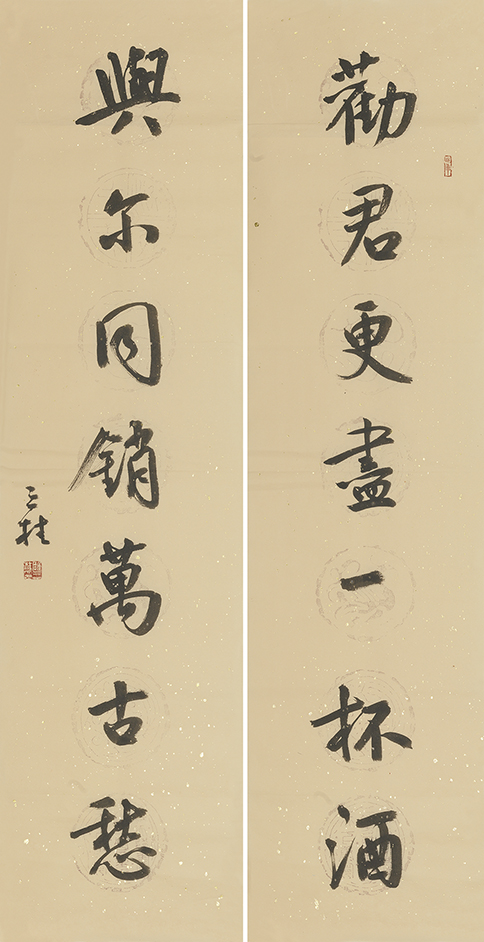 勸君更盡一杯酒
與尔同銷萬古愁